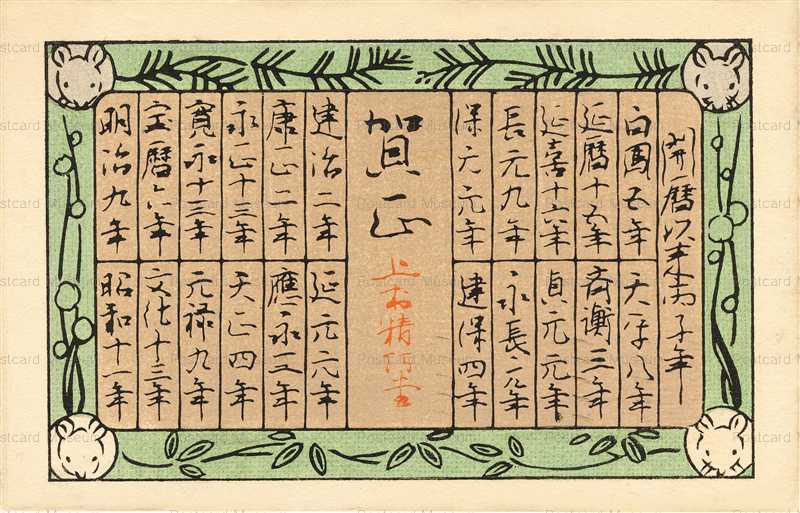 開暦以来丙子年
白鳳五年
天平八年
延暦十五年
斉衡三年
延喜十六年
貞元元年
長元九年
永長元年
保元元年
建保四年
賀正
建治二年
延元元年
康正二年
應永三年
永正十三年
天正四年
寛永十三年
元禄九年
宝暦六年
文化十三年
明治九年
昭和十一年
Postcard Museum